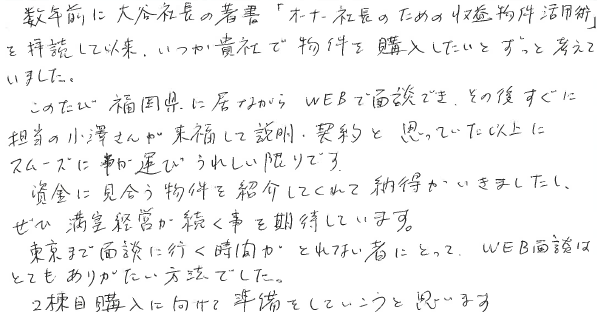 数年前に大谷社長の著書「オーナー社長のための収益物件活用術」
を拝読して以来、いつか貴社で物件を購入したいとずっと考えて
いました。
このたび福岡県に居ながらWEBで面談でき、その後すぐに
担当の小澤さんが来福して説明・契約と思っていた以上に
スムーズに事が運びうれしい限りです。
資金に見合う物件を紹介してくれて納得がいきましたし、
ぜひ満室経営が続く事を期待しています。
東京まで面談に行く時間がとれない者にとって、WEB面談は
とてもありがたい方法でした。
2棟目購入に向けて準備をしていこうと思います